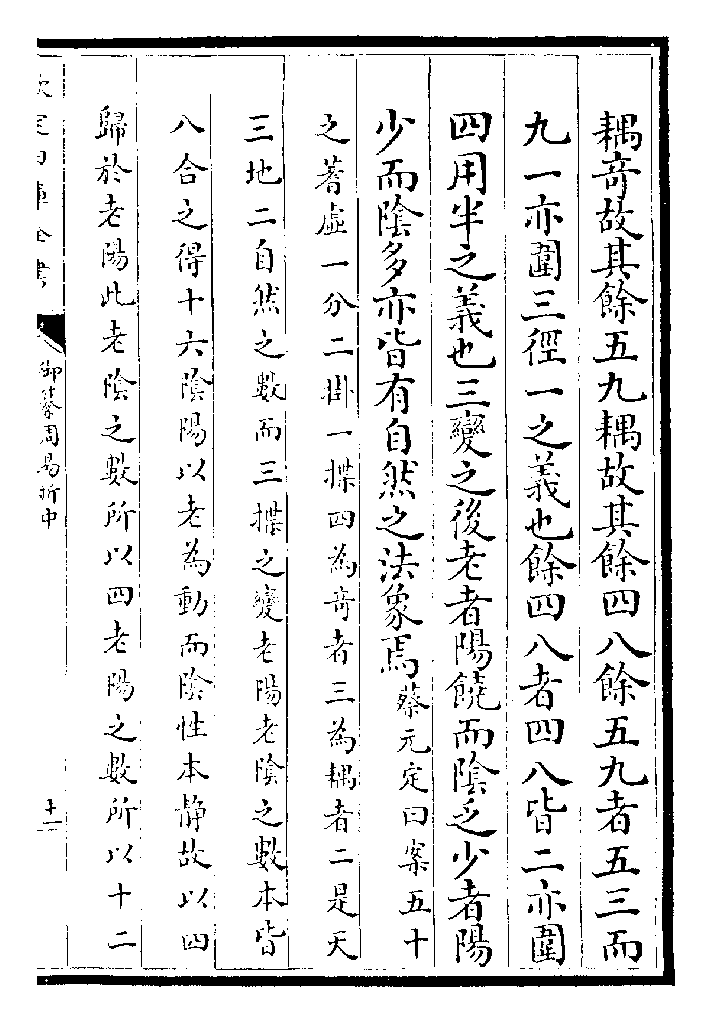 耦奇故其餘五九耦故其餘四八餘五九者五三而
九一亦圍三徑一之義也餘四八者四八皆二亦圍
四用半之義也三變之後老者陽饒而陰乏少者陽
少而陰多亦皆有自然之法象焉蔡元定曰案五十
之蓍虛一分二掛一揲四為奇者三為耦者二是天
三地二自然之數而三揲之變老陽老陰之數本皆
八合之得十六陰陽以老為動而陰性本静故以四
歸於老陽此老陰之數所以四老陽之數所以十二
御纂周易折中
十一